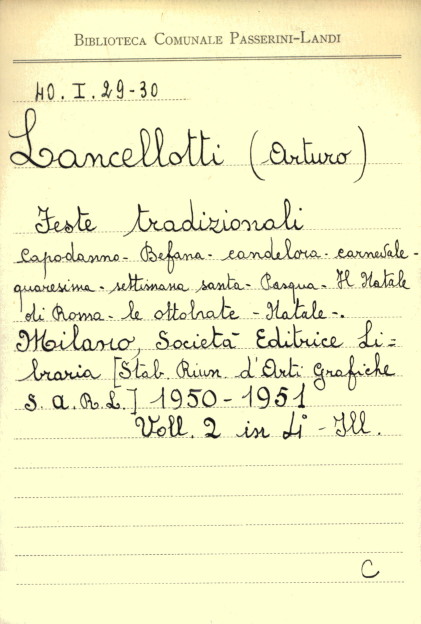 BIBLIOTECA COMUNALE PASSERINI-LANDI
40.I.29-30
Lancellotti (Arturo)
Feste tradizionali
Capodanno - Befana - candelora - carnevale -
quaresima - settimana santa - Pasqua - Il Natale
di Roma - le ottobrate - Natale -.
Milano, Società Editrice Li=
braria [Stab. Riun. d'Arti Grafiche
S.A.R.L.] 1950-1951
Voll. 2 in 4° - Ill.
C